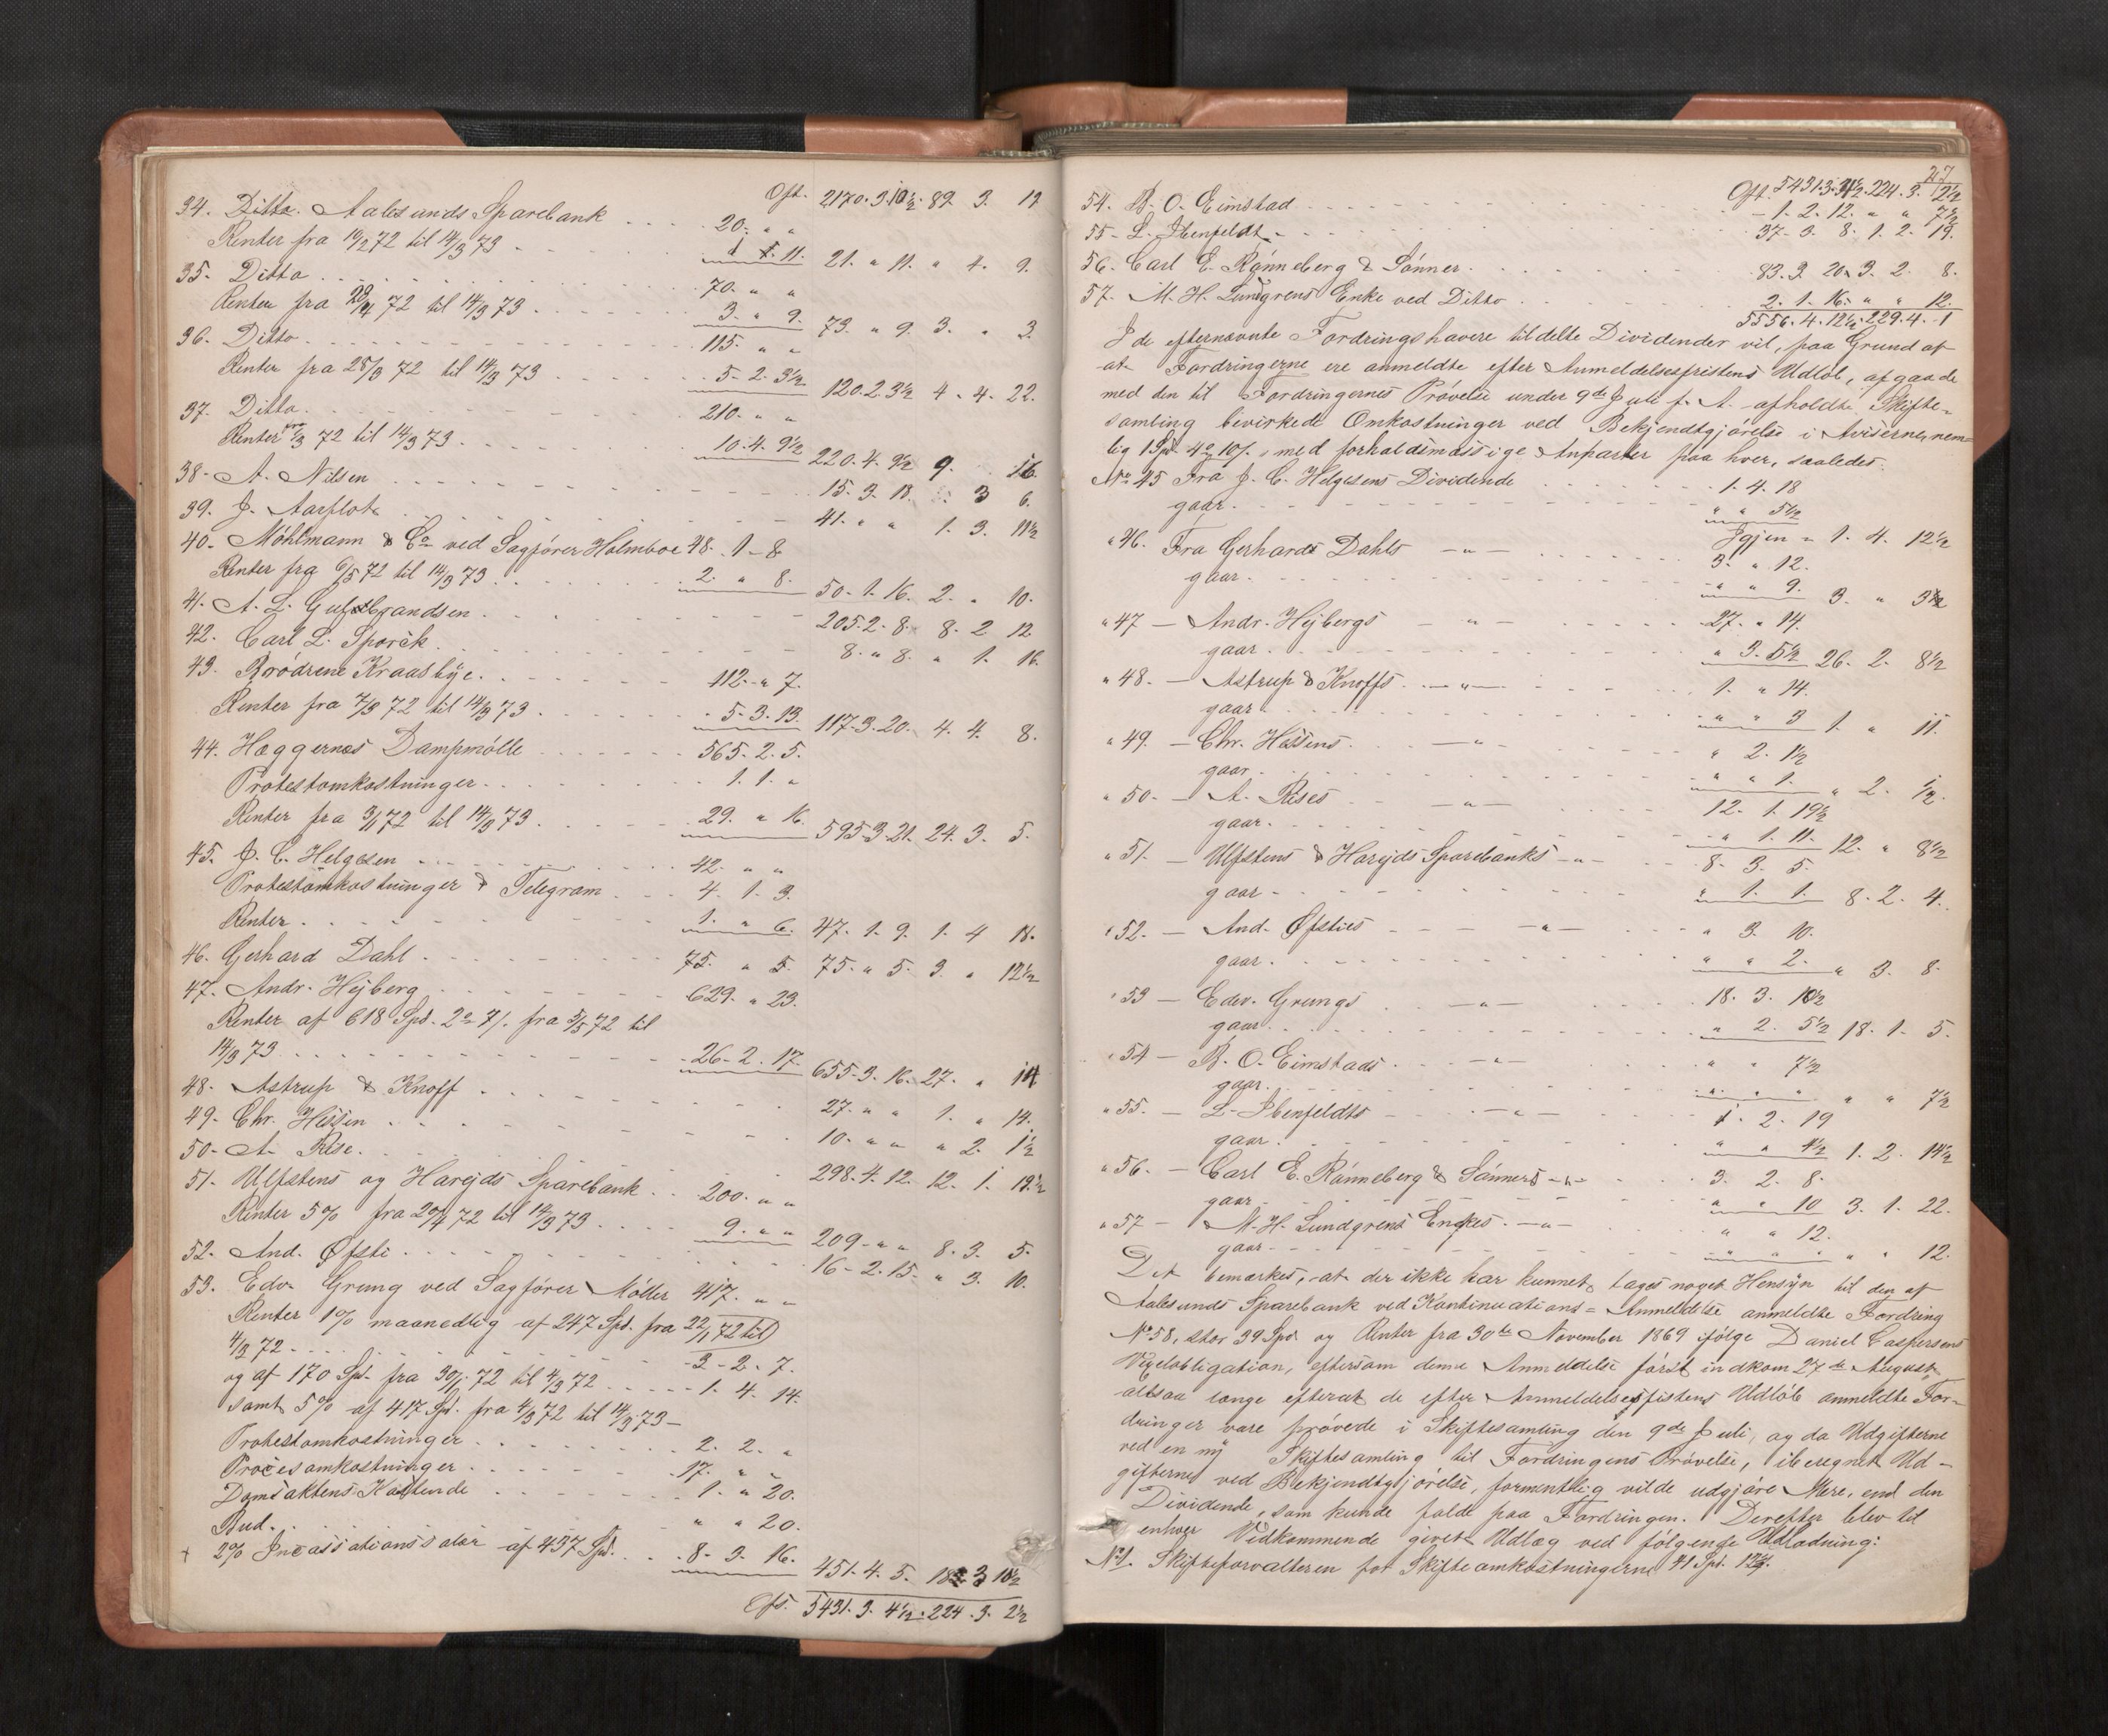 Oft. 2170. 3. 10½. 89. 3. 19
34. Ditto. Aalesunds Sparebank . . . . 20. " "
Renter fra 10/2 72 til 14/3 73 . . 1. 11. 21. " 11. " 4. 9.
35. Ditto . . . . 70. " "
Renter fra 28/4 72 til 14/3 73 . . . 3. " 9. 73. " 9. 3. " 3.
36. Ditto . . . . 115. " "
Renter fra 25/3 72 til 14/3 73 . . . 5. 2. 3½ 120. 2. 3½ 4. 4. 22.
37. Ditto . . . . 210. " "
Renter fra 72 til 14/3 73 . . . 10. 4. 9½ 220. 4. 9½ 9. 16.
38. A. Nilsen . . . . 15. 3. 18. " 3 6.
39. J. Aarflot . . . . 41. " " 1. 3. 11½
40. Möhlmann & Co ved Sagfører Holmboe 48. 1. 8.
Renter fra 6/5 72 til 14/3 73 . . . 2. " 8. 50. 1. 16. 2. " 10.
41. A. L. Gulbrandsen . . . . 205. 2. 8. 8. 2 12
42. Carl L. Sporck . . . . 8. " 8. " 1. 16.
43. Brødrene Kraasbye . . . . 112. " 7.
Renter fra 7/3 72 til 14/3 73 . . . 5. 3. 13. 117. 3. 20. 4. 4. 8.
44. Hæggernæs Dampmølle . . . 565. 2. 5.
Protestomkostninger . . . . 1. 1. "
Renter fra 3/1 72 til 14/3 73 . . . 29. " 16. 595. 3. 21. 24. 3. 5.
45. J. C. Helgesen . . . . 42. " "
Protestomkostninger & Telegram . . . 4. 1. 3.
Renter . . . . 1. " 6. 47. 1. 9. 1. 4 18.
46. Gerhard Dahl . . . . 75. " 5. 75. " 5. 3. " 12½
47. Andr. Hejberg . . . . 629. " 23.
Renter af 618 Spd. 2 " 7 /. fra 5/5 72 til
14/3 73 . . . . 26. 2. 17. 655. 3. 16. 27. " 14
48. Astrup & Knoff . . . . 27. " " 1. " 14.
49. Chr. Hessen . . . . 10. " " " 2. 1½
50. A. Rise . . . . 298. 4. 12. 12. 1. 19½
51. Ulfstens og Harejds Sparebank . . 200. " "
Renter 5% fra 20/4 72 til 14/3 73 . . . 9. " " 209. " " 8. 3. 5.
52. And. Øfsti . . . . 16. 2. 15. " 3. 10.
53. Edv. Grung ved Sagfører Møller 417. " "
Renter 1% maanedlig af 247 Spd. fra 22/1 72 til
4/3 72 . . . . 3. 2. 7.
og af 170 Spd. fra 30/1 72 til 4/3 72 . . . . 1. 4. 14.
samt 5% af 417 Spd. fra 4/3 72 til 14/3 73 —
Protestomkostninger . . . . 2. 2. "
Procesomkostninger . . . . 17. " "
Domsaktens . . . . 1. " 20.
Bud . . . . " " 20.
2% Incassationssalær af 437 Spd. . . 8. 3. 16. 451. 4. 5. 18 3 10½
Ofs. 5431. 3. 4½. 224. 3. 2½
27
Oft. 5431. 3. 4½. 224. 3. 2½
54. B. O. Eimstad . . . . 1. 2. 12. " " 7½
55. L. Ibenfeldt . . . . 37. 3. 8. 1. 2. 19.
56. Carl E. Rønneberg & Sønner . . . . 83. 3. 20. 3. 2. 8.
57. M. H. Lundgrens Enke ved Ditto . . . . 2. 1. 16. " " 12.
5556. 4. 12½. 229. 4. 1
I de efternævnte Fordringshavere tildelte Dividender vil, paa Grund af
at Fordringerne ere anmeldte efter Anmeldelsesfristens Udløb, afgaa de
med den til Fordringernes Prøvelse under 9de Juli f. A. afholdte Skifte=
samling bevirkede Omkostninger ved Bekjendtgjørelse i Aviserne, nem=
lig 1 Spd. 4 " 10 /., med forholdsmæssige Anparter paa hver, saaledes:
No 45 Fra J. C. Helgesens Dividende . . . 1. 4. 18
gaar . . . . " " 5½
Igjen " 1. 4. 12½
" 46. Fra Gerhard Dahls — " — . . . 3. " 12.
gaar . . . . " " 9. 3. " 3½
" 47 — Andr. Hejbergs — " — . . . 27. " 14.
gaar . . . . " 3. 5½ 26. 2. 8½
" 48. — Astrup & Knoffs — " — . . . 1. " 14.
gaar . . . . " " 3 1. " 11.
" 49. — Chr. Hessens — " — . . . " 2. 1½
gaar . . . . " " 1. " 2. ½.
" 50. — A. Rises — " — . . . 12. 1. 19½
gaar . . . . " 1. 11. 12. " 8½
" 51. — Ulfstens & Harejds Sparebanks — " — 8. 3. 5.
gaar . . . . " 1. 1. 8. 2. 4.
" 52. — And. Øfsties — " — . . . " 3. 10.
gaar . . . . " " 2. " 3. 8.
" 53 — Edv. Grungs — " — . . . 18. 3. 10½
gaar . . . . " 2. 5½ 18. 1. 5.
" 54 — B. O. Eimstads — " — . . . " " 7½
gaar . . . . " " " " " 7½
" 55. — L. Ibenfeldts — " — . . . 1. 2. 19
gaar . . . . " " 4½ 1. 2. 14½
" 56. — Carl E. Rønneberg & Sønners — " — 3. 2. 8.
gaar . . . . " " 10 3. 1. 22.
" 57 — M. H. Lundgrens Enkes — " — . . " " 12.
gaar . . . . " " " " " 12.
Det bemærkes, at der ikke har kunnet tages noget Hensyn til den af
Aalesunds Sparebank ved Kontinuations= Anmeldelse anmeldte Fordring
No 58, stor 39 Spd. og Renter fra 30te November 1869 ifølge Daniel Caspersens
Vexelobligation, eftersom denne Anmeldelse først indkom 27de August,
altsaa længe efterat de efter Anmeldelsesfristens Udløb anmeldte For=
dringer vare prøvede i Skiftesamling den 9de Juli, og da Udgifterne
ved en ny Skiftesamling til Fordringens Prøvelse, iberegnet Ud=
gifterne ved Bekjendtgjørelse, formentlig vilde udgjøre Mere, end den
Dividende, som kunde falde paa Fordringen. Derefter blev til
enhver Vidkommende givet Udlæg ved følgende Udlodning:
No 1. Skifteforvalteren for Skifteomkostningerne 41 Spd.